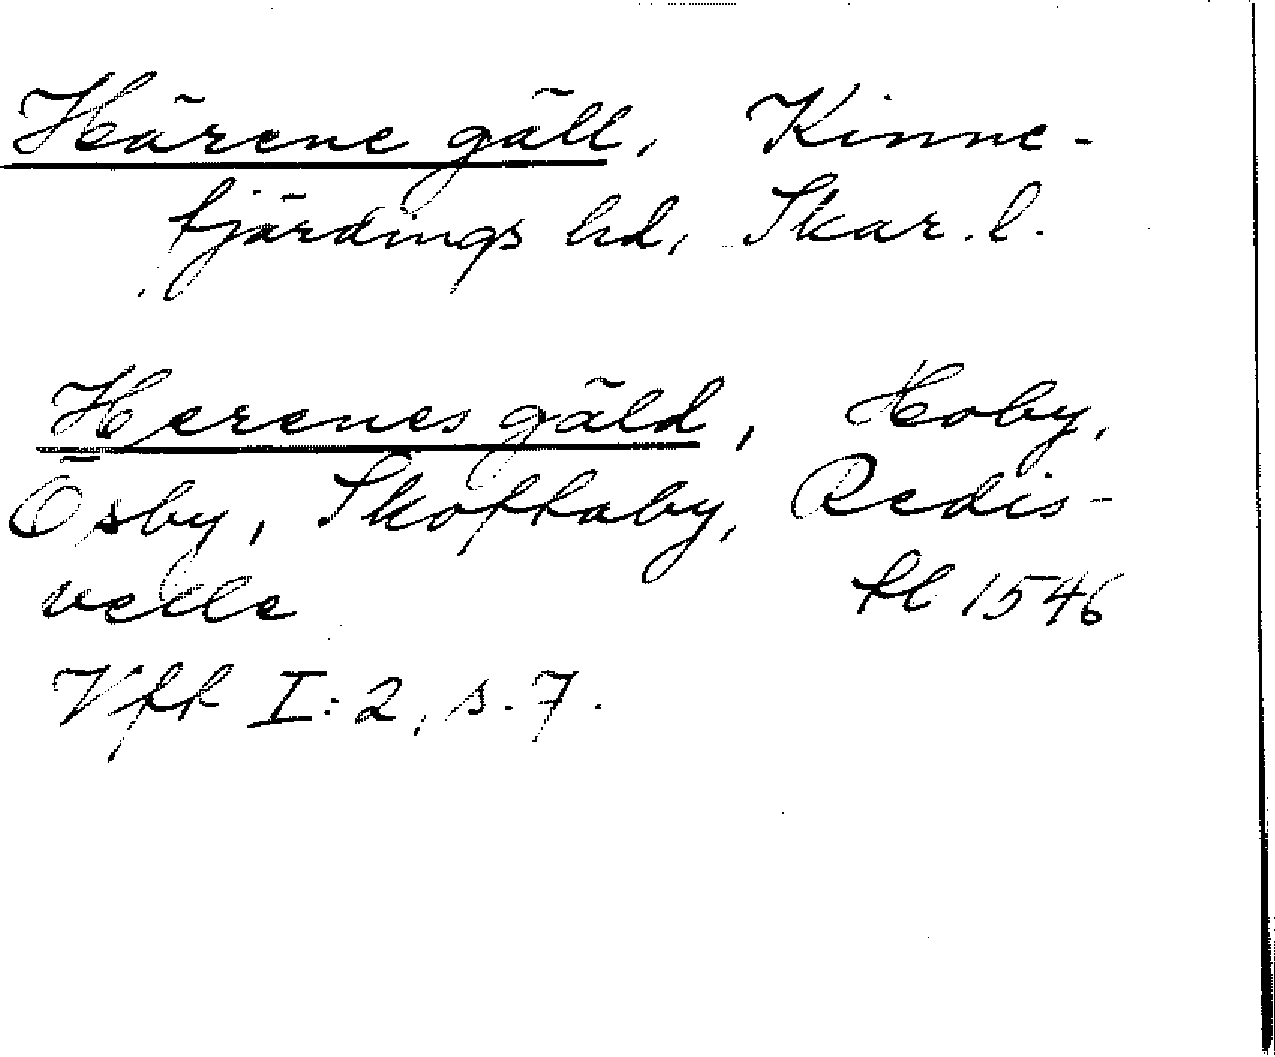 Härene gäll, Kinne-
fjärdings hd, Skar. l.
Herenes gäld, Hoby,
Ösby, Skoftaby, Redis-
velle fl 1546
Vfft I:2, s. 7.